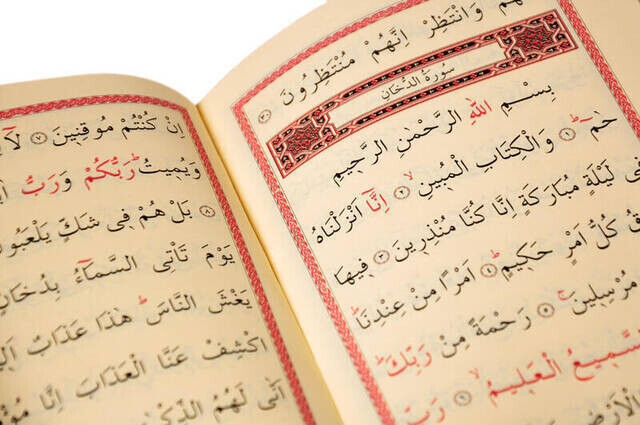 وَانْتَظِرْ اِنَّهُمْ مُنْتَظِرُونَ ﴿٣٠﴾
سُورَةُ الدُّخَانِ
بِسْمِ اللّٰهِ الرَّحْمٰنِ الرَّحِيمِ
حٰمٓ ﴿١﴾ وَالْكِتَابِ الْمُبِينِ ﴿٢﴾ اِنَّٓا اَنْزَلْنَاهُ
لَيْلَةٍ مُبَارَكَةٍ اِنَّا كُنَّا مُنْذِرِينَ ﴿٣﴾ فِيهَا
كُلُّ اَمْرٍ حَكِيمٍ ﴿٤﴾ اَمْرًا مِنْ عِنْدِنَا
مُرْسِلِينَ ﴿٥﴾ رَحْمَةً مِنْ رَبِّكَ
السَّمِيعُ الْعَلِيمُ ﴿٦﴾ رَبِّ
اِنْ كُنْتُمْ مُوقِنِينَ ﴿٧﴾ لَٓا
وَيُمِيتُ رَبُّكُمْ وَرَبُّ
﴿٨﴾ بَلْ هُمْ فِى شَكٍّ يَلْعَبُونَ
يَوْمَ تَأْتِى السَّمَٓاءُ بِدُخَانٍ
يَغْشَى النَّاسَ هٰذَا عَذَابٌ
اكْشِفْ عَنَّا الْعَذَابَ اِنَّا
اَنّٰى لَهُمُ الذِّكْرٰى